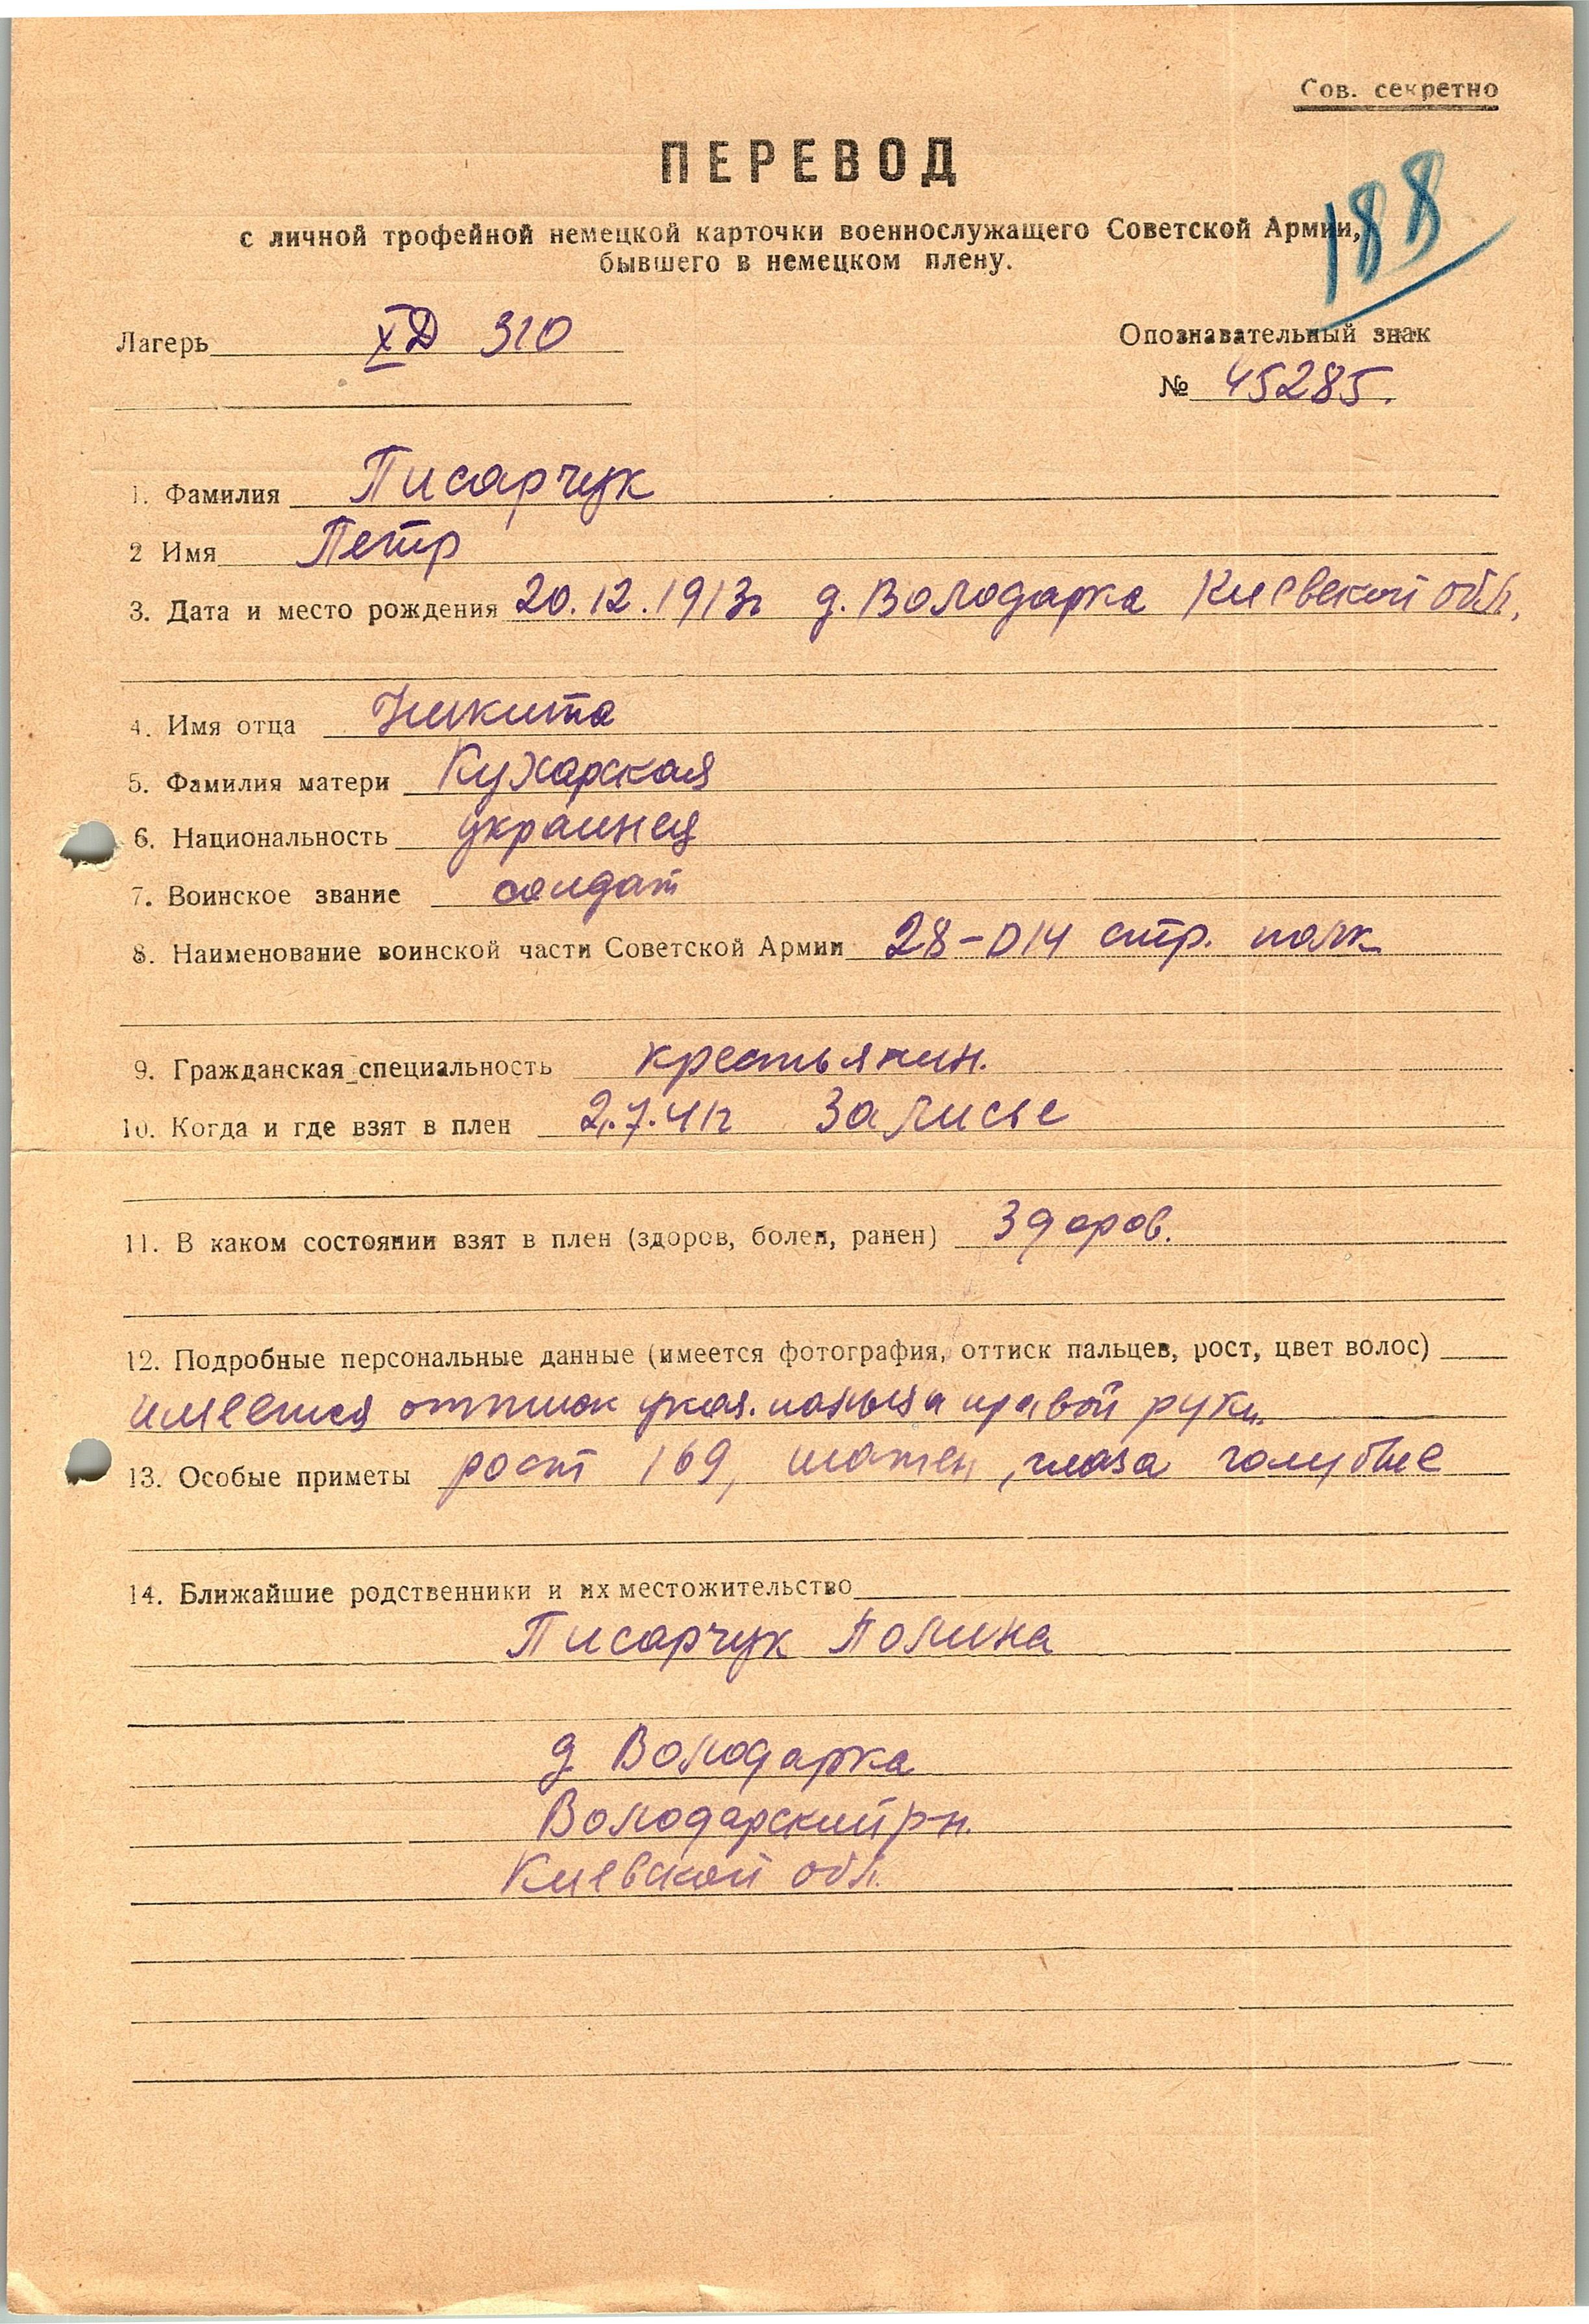 Сов. секретно
ПЕРЕВОД
188
с личной трофейной немецкой карточки военнослужащего Советской Армии,
бывшего в немецком плену.
Лагерь XД 310
Опознавательный знак
№ 45285.
1. Фамилия Писарчук
2 Имя Петр
3. Дата и место рождения 20.12.1913г д. Володарка Киевской обл.
4. Имя отца Никита
5. Фамилия матери Кухарская
6. Национальность украинец
7. Воинское звание солдат
8. Наименование воинской части Советской Армии 28-D14 стр. полк
9. Гражданская специальность крестьянин.
10. Когда и где взят в плен 2.7.41г Залисье
11. В каком состоянии взят в плен (здоров, болен, ранен) Здоров.
12. Подробные персональные данные (имеется фотография, оттиск пальцев, рост, цвет волос)
имеется оттиск указ. пальца правой руки.
13. Особые приметы рост 169, шатен, глаза голубые
14. Ближайшие родственники и их местожительство
Писарчук Полина
д Володарка
Володарский р-н.
Киевской обл.